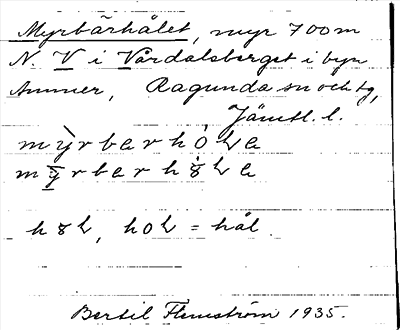 Myrbärhålet, myr 700 m
N. V i Vårdalsberget i byn
Ammer, Ragunda sn och tg,
Jämtl. l.
mỳrberhòɫe
mỳrberhòɫe
hɫ, hoɫ = hål
Bertil Flemström 1935.